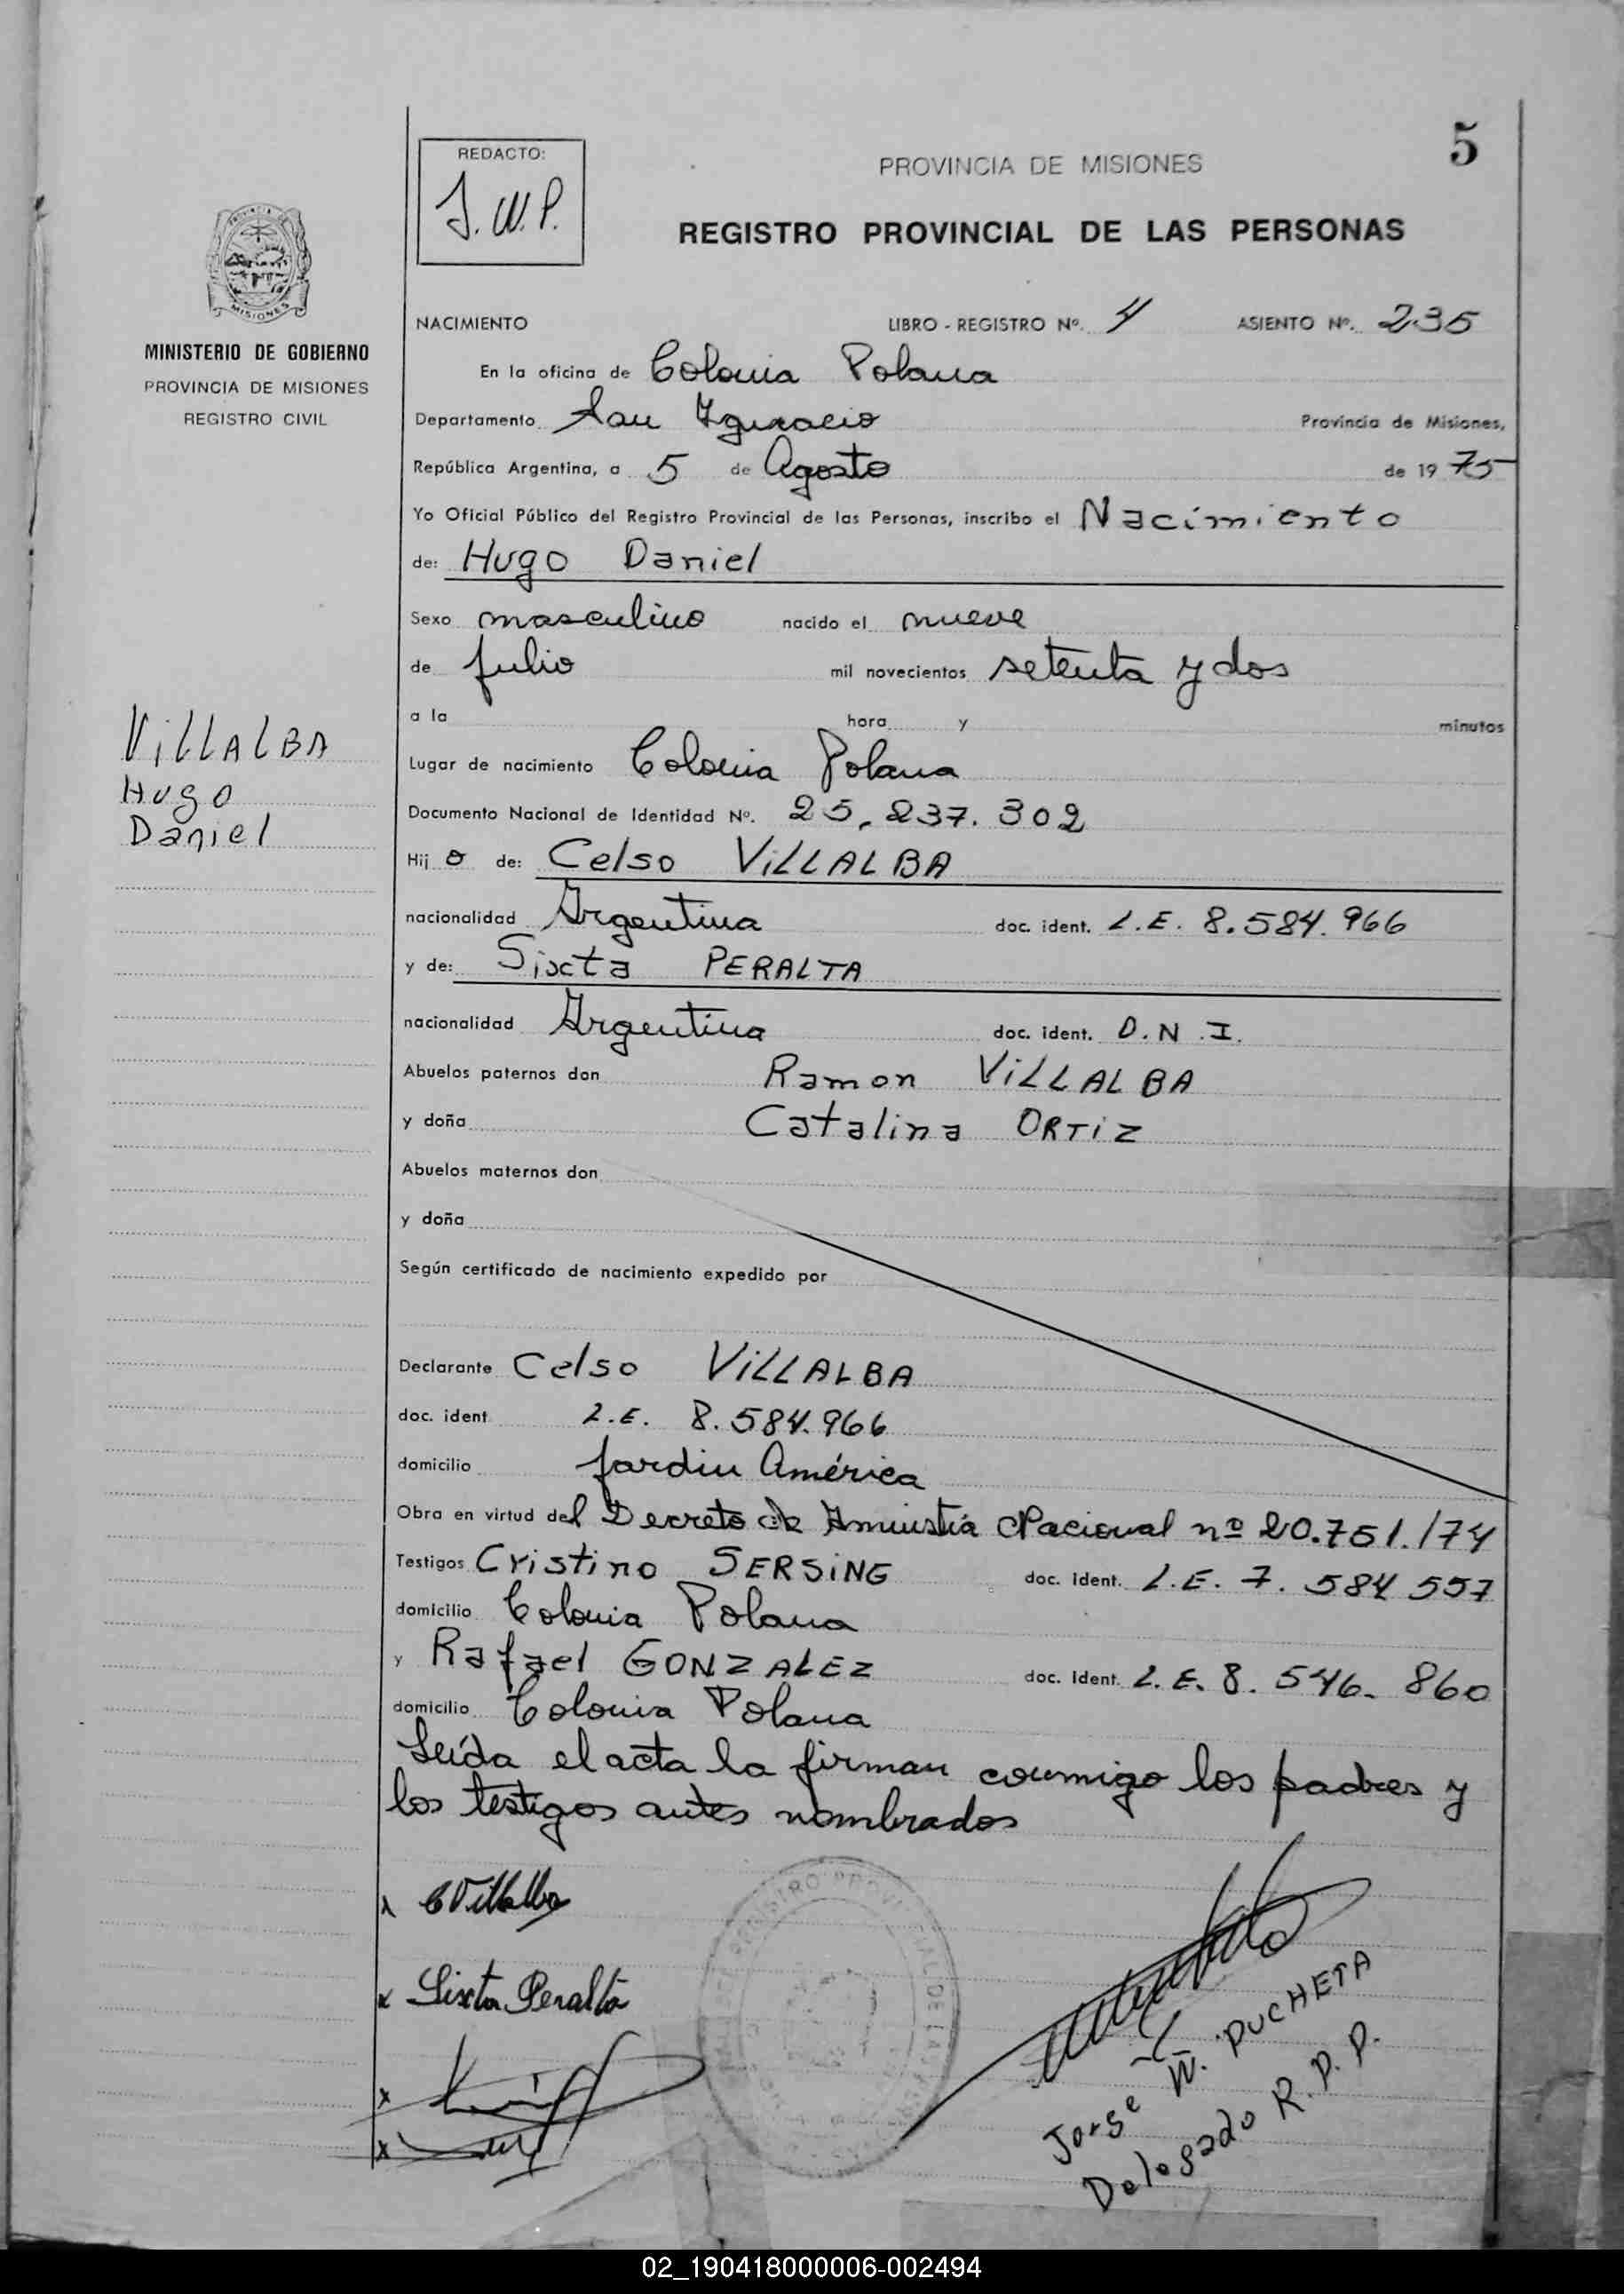 5
REDACTO:
J. W. P.
PROVINCIA DE MISIONES
REGISTRO PROVINCIAL DE LAS PERSONAS
MISIONES
MINISTERIO DE GOBIERNO
PROVINCIA DE MISIONES
REGISTRO CIVIL
NACIMIENTO LIBRO - REGISTRO Nº. ASIENTO Nº. 235
En la oficina de Colonia Polana
Departamento San Ignacio Provincia de Misiones,
República Argentina, a 5 de Agosto de 1975
Yo Oficial Público del Registro Provincial de las Personas, inscribo el Nacimiento
de: Hugo Daniel
Sexo masculino nacido el nueve
de Julio mil novecientos setenta y dos
a la hora y minutos
VILLALBA
Hugo
Daniel
Lugar de nacimiento Colonia Polana
Documento Nacional de Identidad Nº. 25.237.302
Hij o de: Celso VILLALBA
nacionalidad Argentina doc. ident. L.E. 8.584.966
y de: Sixta PERALTA
nacionalidad Argentina doc. ident. D.N.I.
Abuelos paternos don Ramon VILLALBA
y doña Catalina ORTIZ
Abuelos maternos don
y doña
Según certificado de nacimiento expedido por
Declarante Celso VILLALBA
doc. ident L.E. 8.584.966
domicilio Jardin América
Obra en virtud del Decreto de Amnistía Nacional nº 20.751./74
Testigos Cristino SERSING doc. ident. L.E. 7.584 557
domicilio Colonia Polana
y Rafael GONZALEZ doc. ident. L.E. 8.546.860
domicilio Colonia Polana
Leída el acta la firman conmigo los padres y
los testigos antes nombrados
x CVillalba
x Sixta Peralta
x
x
Jorge W. PUCHETA
Delegado R.P.P.
02_190418000006-002494